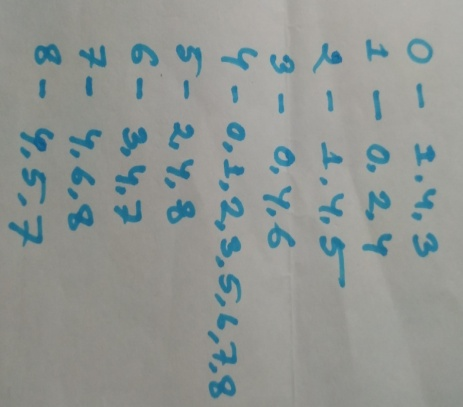 0 - 1.4,3
1 - 0,2,4
2 - 1.4,5
3 - 0,4,6
4 - 0,1,2,3,5,6,7,8
5 - 2,4,8
6 - 3,4,7
7 - 4,6,8
8 - 4,5,7